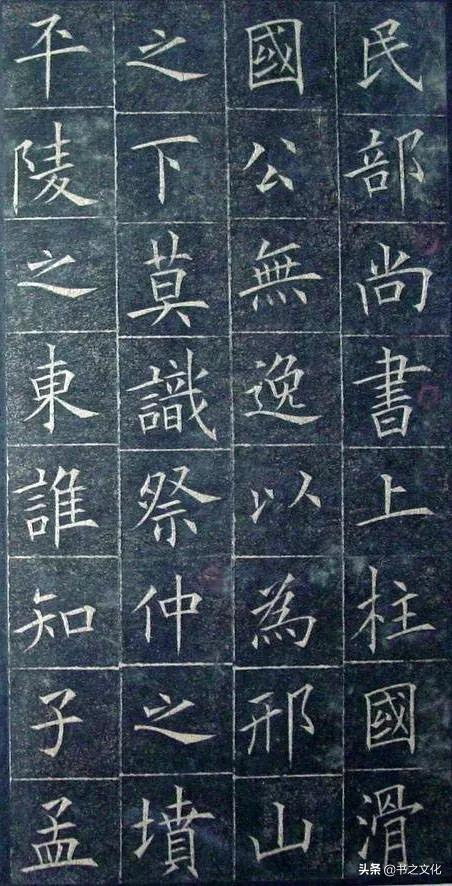 民部尚書上柱國滑
國公無逸以為邢山
之下莫識祭仲之墳
平陵之東誰知子孟
头条 @书之文化